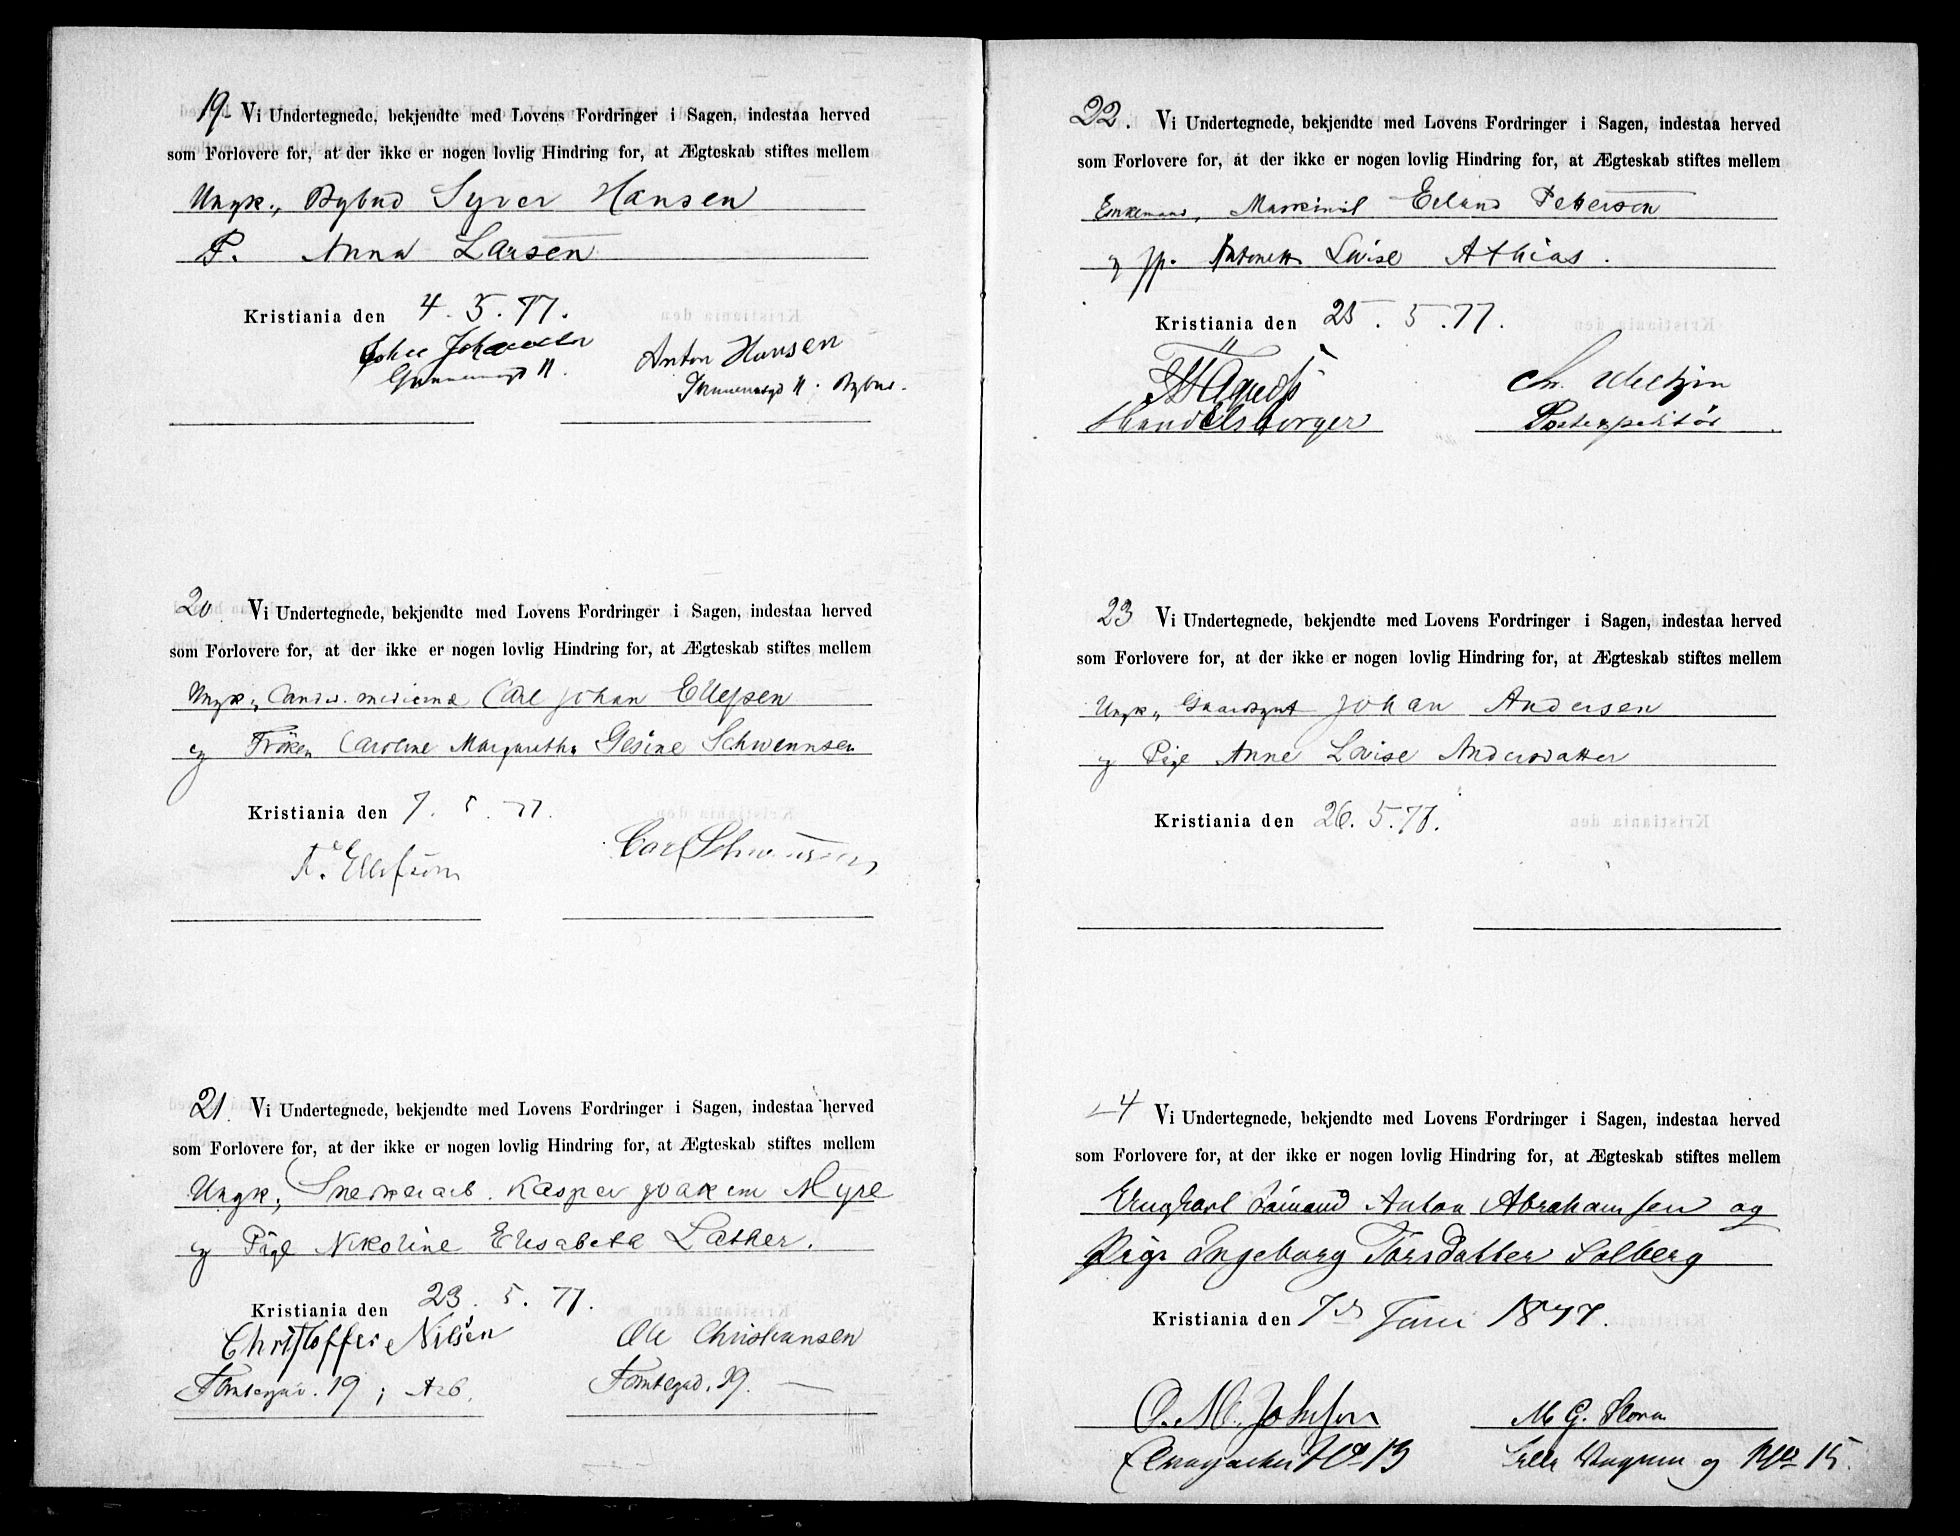 19. Vi Undertegnede, bekjendte med Lovens Fordringer i Sagen, indestaa herved
som Forlovere for, at der ikke er nogen lovlig Hindring for, at Ægteskab stiftes mellem
Ungk., Bybud Syver Hansen
P. Anna Larsen
Kristiania den 4. 5. 77.
Anton Hansen
11. 11. Bybud.
20 Vi Undertegnede, bekjendte med Lovens Fordringer i Sagen, indestaa herved
som Forlovere for, at der ikke er nogen lovlig Hindring for, at Ægteskab stiftes mellem
Ungk., Cand. medicinæ Carl Johan Ellefsen
og Frøken Caroline Margarethe Gesine Schwennsen
Kristiania den 7. 5. 77.
Ellefsen Carl Schwennsen
21. Vi Undertegnede, bekjendte med Lovens Fordringer i Sagen, indestaa herved
som Forlovere for, at der ikke er nogen lovlig Hindring for, at Ægteskab stiftes mellem
Ungk., Snedkerarb. Kasper Joakim Myre
og Pige Nikoline Elisabeta Lather.
Kristiania den 23. 5. 77.
Christoffer Nilsen Ole Christiansen
Tomtegad. 19; Arb. Tomtegad. 19.
22. Vi Undertegnede, bekjendte med Lovens Fordringer i Sagen, indestaa herved
som Forlovere for, at der ikke er nogen lovlig Hindring for, at Ægteskab stiftes mellem
Enkemand, Maskinist Erland Petterson
og Antonette Lovise Athias.
Kristiania den 25. 5. 77.
Chr.
Handelsborger Postexpeditør
23 Vi Undertegnede, bekjendte med Lovens Fordringer i Sagen, indestaa herved
som Forlovere for, at der ikke er nogen lovlig Hindring for, at Ægteskab stiftes mellem
Ungk., Johan Andersen
og Pige Anne Lovise Andersdatter
Kristiania den 26. 5. 77.
24 Vi Undertegnede, bekjendte med Lovens Fordringer i Sagen, indestaa herved
som Forlovere for, at der ikke er nogen lovlig Hindring for, at Ægteskab stiftes mellem
Ungkarl Sømand Anton Abrahamsen og
Pige Ingeborg Torsdatter Solberg
Kristiania den 7de Juni 1877.
O. M. Johnson M. G.
No 13 No 15.